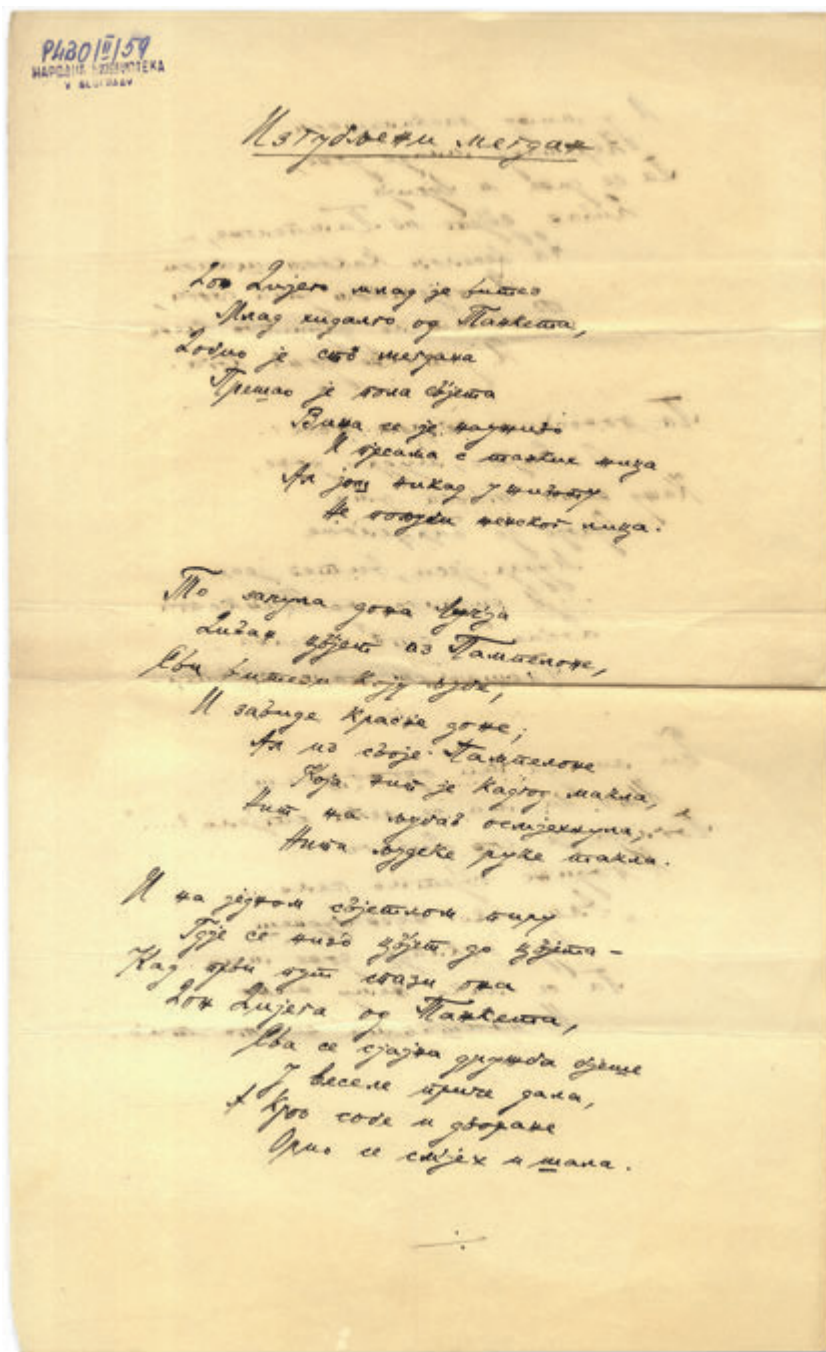 Р430/II/59
НАРОДНА БИБЛИОТЕКА
У БЕОГРАДУ
Изгубљени мегдан
Дон Дијего млад је витез
Млад хидалго од Панкета,
Добио је ств мегдана
Прешао је пола свјета
Вина се је науживо
И пјесама с танких жица
Ал још никад у животу
Не пољуби женског лица.
То зачула дона Лучија
Диван цвјет из Пампелоне,
Сви витези коју љубе,
И завиде красне доне;
Ал из своје Пампелоне
Која нит је кадгод макла,
Нит на љубав осмјехнула,
Нити људске руке такла.
И на једном свјетлом пиру
Гдје се нижо цвјет до цвјета –
Кад први пут спази она
Дон Дијега од Панкета,
Сва се сјајна дружба бјеше
У веселе приче дала,
А кроз собе и дворане
Орио се смјех и шала.